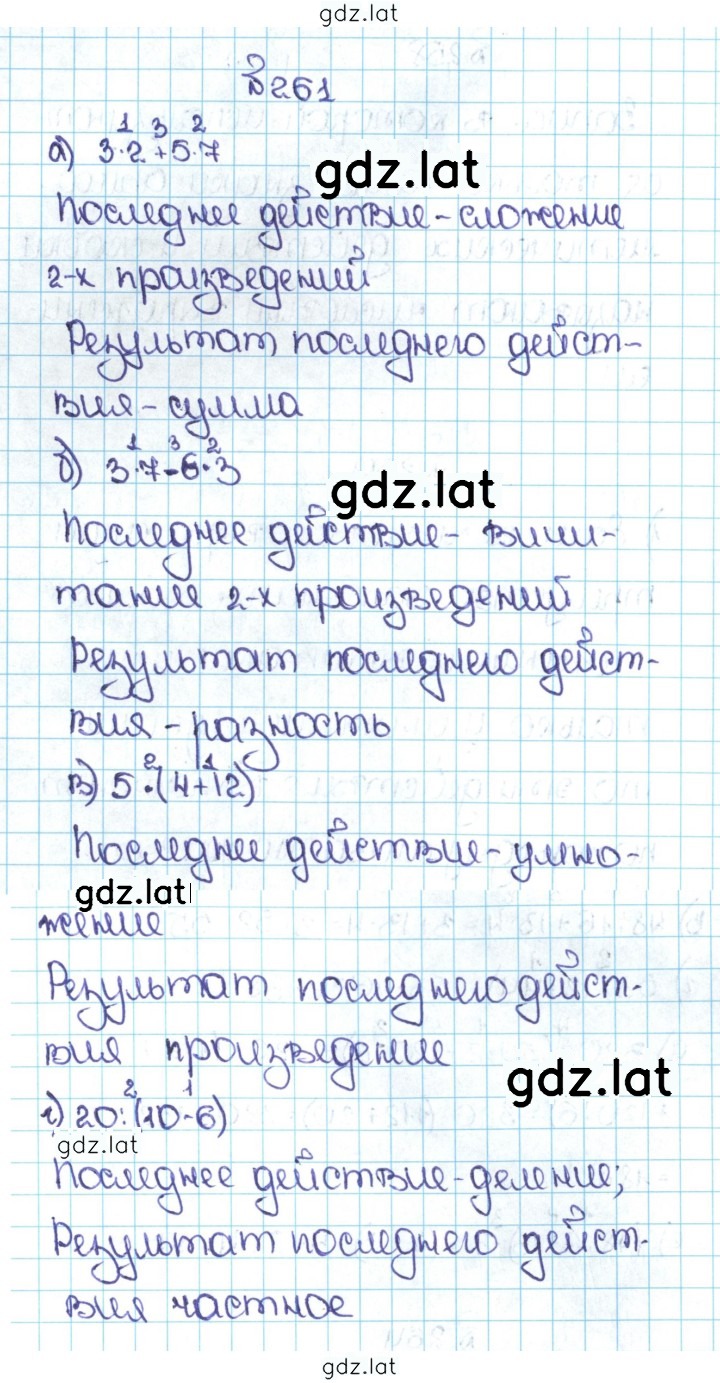 gdz.lat
№261
1 3 2
а) 3·2+5·7
gdz.lat
Последнее действие-сложение
2-х произведений
Результат последнего дейст-
вия-сумма
1 3 2
б) 3·7-6·3
gdz.lat
Последнее действие- вычи-
тание 2-х произведений
Результат последнего дейст-
вия-разность
2 1
в) 5·(4+12)
Последнее действие-умно-
gdz.lat
жение
Результат последнего дейст-
вия произведение
gdz.lat
2 1
г) 20:(10-6)
gdz.lat
Последнее действие-деление;
Результат последнего дейст-
вия частное
gdz.lat